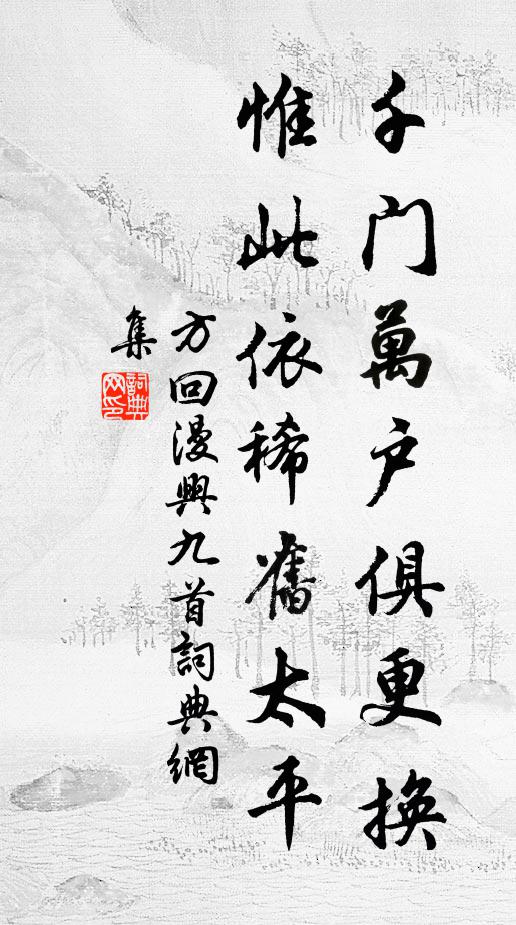 千门萬户俱更換
惟此依稀舊太平
方回漫興九首詞典網
集
詞典
网印